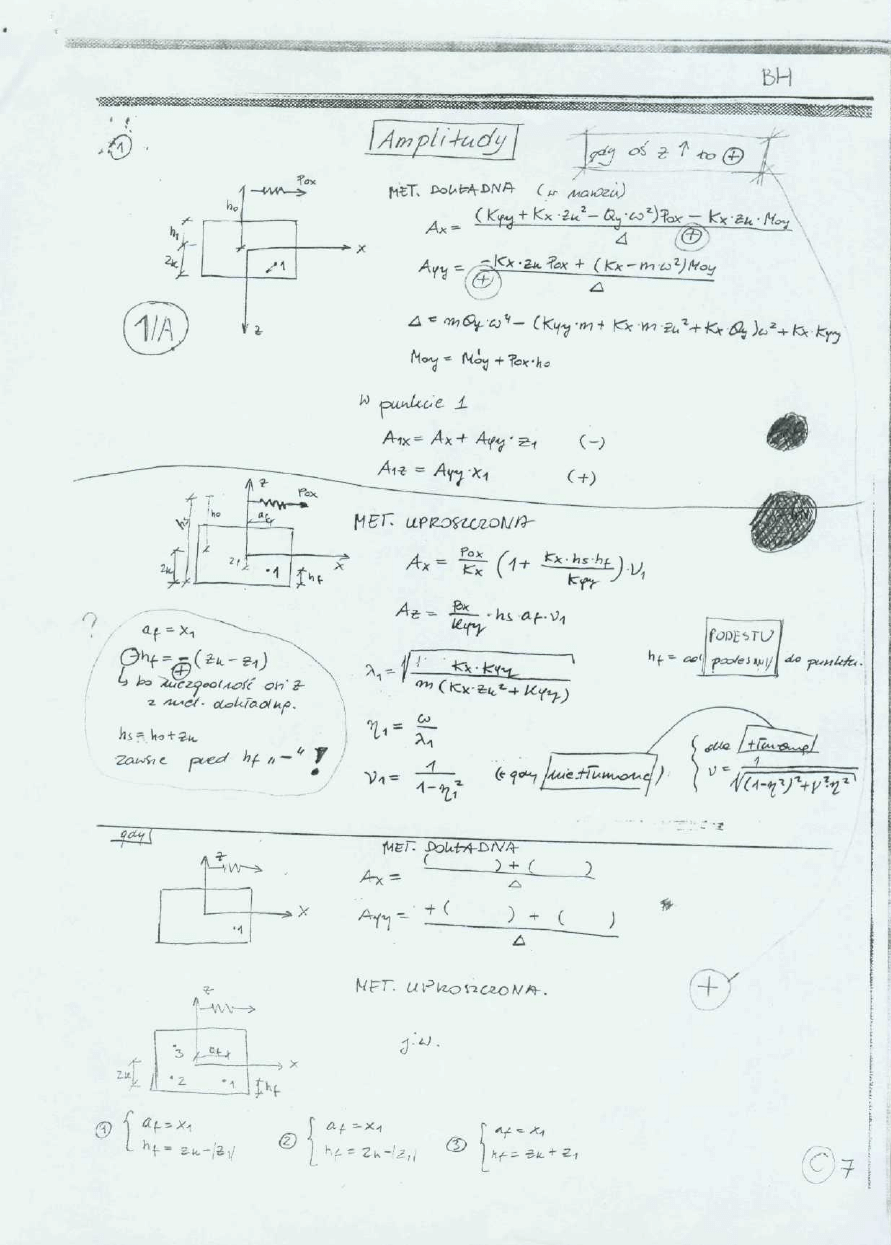 BH
1
Amplitudy
gdy oś z ↑ to ⊕
Pox
h₀
h₁
zk
x
z
1
1/A
MET. DOKŁADNA
Ax = ((Kφy + Kx·zk² − Qy·ω²)Pox − Kx·zk·Moy) / Δ
⊕
Aφy = (−Kx·zk Pox + (Kx − mω²)Moy) / Δ
⊕
Δ = mQy·ω⁴ − (Kφy·m + Kx·m·zk² + Kx Qy)ω² + Kx·Kφy
Moy = Móy + Pox·h₀
W punkcie 1
A1x = Ax + Aφy·z₁ (−)
A1z = Aφy·x₁ (+)
z
Pox
hs
h₀
af
zk
z₁
1
hf
x
MET. UPROSZCZONA
Ax = Pox/Kx (1 + Kx·hs·hf/Kφy)·ν₁
Az = Pox/Kφy · hs·af·ν₁
?
af = x₁
⊖hf = −(zk − z₁)
⊕
↳ bo niezgodność osi z
z met. dokładną.
hs = h₀ + zk
zawsze przed hf „−" !
λ₁ = √(Kx·Kφy / m(Kx·zk² + Kφy))
hf = od PODESTU do punktu.
η₁ = ω/λ₁
ν₁ = 1/(1−η₁²) (gdy nietłumione)
dla tłumione
ν = 1/√((1−η²)² + γ²·η²)
gdy
z
x
1
MET. DOKŁADNA
Ax = (( ) + ( )) / Δ
Aφy = (+( ) + ( )) / Δ
z
x
3
af
2
1
zk
hf
MET. UPROSZCZONA.
j.w.
+
① { af = x₁
hf = zk − |z₁|
② { af = x₁
hf = zk − |z₁|
③ { af = x₁
hf = zk + z₁
C 7